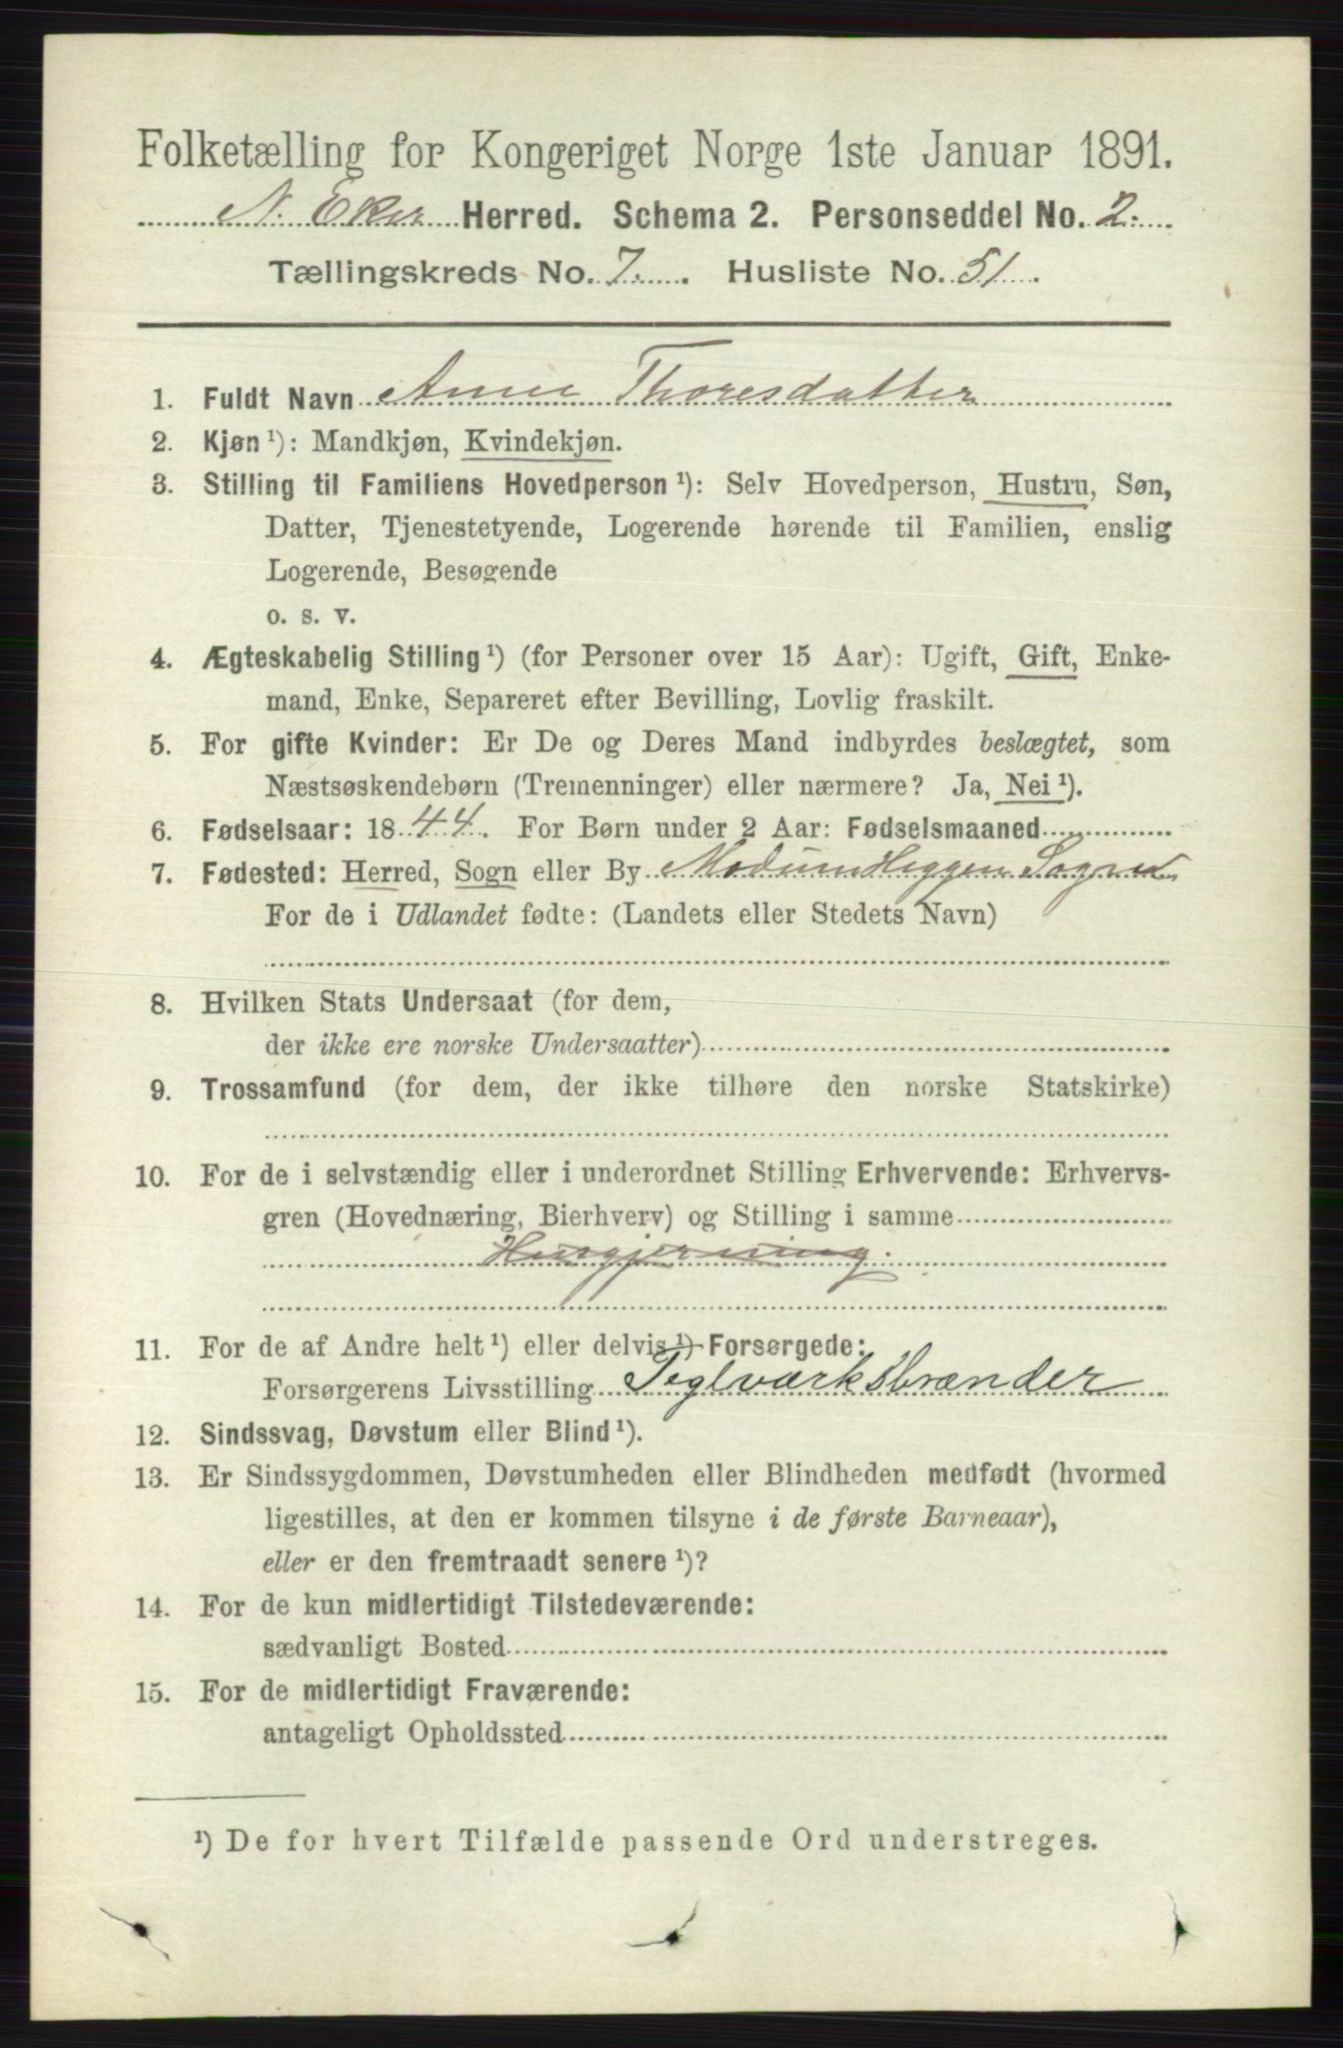 Folketælling for Kongeriget Norge 1ste Januar 1891.
N. Eker Herred. Schema 2. Personseddel No. 2.
Tællingskreds No. 7. Husliste No. 51.
1. Fuldt Navn Anne Thoresdatter
2. Kjøn ¹): Mandkjøn, Kvindekjøn.
3. Stilling til Familiens Hovedperson ¹): Selv Hovedperson, Hustru, Søn,
Datter, Tjenestetyende, Logerende hørende til Familien, enslig
Logerende, Besøgende
o. s. v.
4. Ægteskabelig Stilling ¹) (for Personer over 15 Aar): Ugift, Gift, Enke-
mand, Enke, Separeret efter Bevilling, Lovlig fraskilt.
5. For gifte Kvinder: Er De og Deres Mand indbyrdes beslægtet, som
Næstsøskendebørn (Tremenninger) eller nærmere? Ja, Nei ¹).
6. Fødselsaar: 1844. For Børn under 2 Aar: Fødselsmaaned
7. Fødested: Herred, Sogn eller By Modum Heggen Sogn
For de i Udlandet fødte: (Landets eller Stedets Navn)
8. Hvilken Stats Undersaat (for dem,
der ikke ere norske Undersaatter)
9. Trossamfund (for dem, der ikke tilhøre den norske Statskirke)
10. For de i selvstændig eller i underordnet Stilling Erhvervende: Erhvervs-
gren (Hovednæring, Bierhverv) og Stilling i samme
Husgjerning.
11. For de af Andre helt ¹) eller delvis ¹) Forsørgede:
Forsørgerens Livsstilling Teglværksbrænder
12. Sindssvag, Døvstum eller Blind ¹).
13. Er Sindssygdommen, Døvstumheden eller Blindheden medfødt (hvormed
ligestilles, at den er kommen tilsyne i de første Barneaar),
eller er den fremtraadt senere ¹)?
14. For de kun midlertidigt Tilstedeværende:
sædvanligt Bosted
15. For de midlertidigt Fraværende:
antageligt Opholdssted
¹) De for hvert Tilfælde passende Ord understreges.